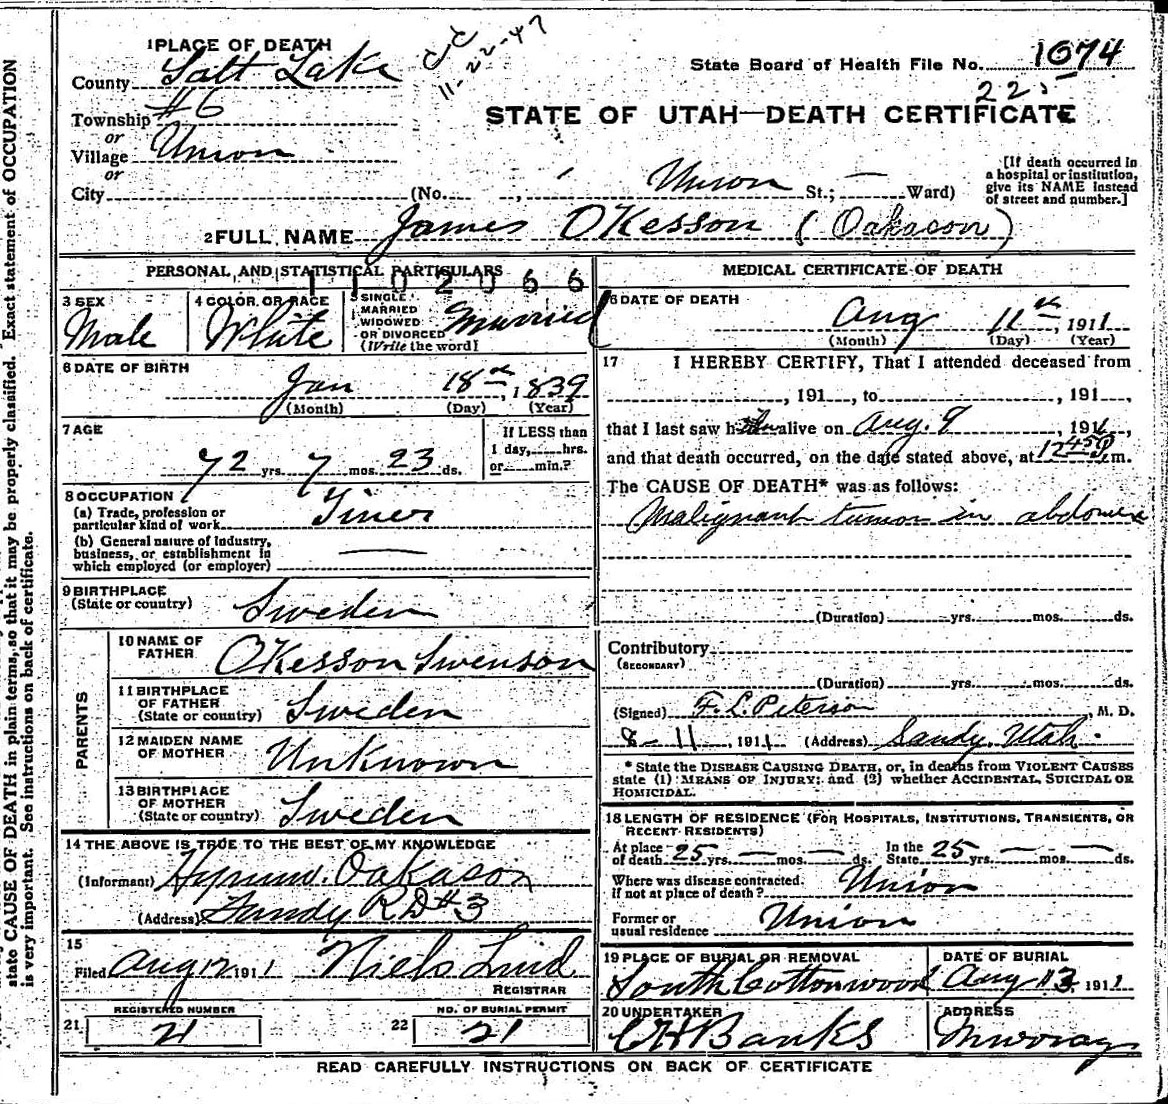 state CAUSE OF DEATH in plain terms, so that it may be properly classified. Exact statement of OCCUPATION
is very important. See instructions on back of certificate.
1 PLACE OF DEATH
County Salt Lake
CC
11-22-47
State Board of Health File No. 1074
22
Township #6
or
Village Union
or
City
STATE OF UTAH—DEATH CERTIFICATE
(No. , Union St.; — Ward)
[If death occurred in
a hospital or institution,
give its NAME instead
of street and number.]
2 FULL NAME James OKesson (Oakason)
PERSONAL AND STATISTICAL PARTICULARS
1102066
3 SEX
Male
4 COLOR OR RACE
White
5 SINGLE
MARRIED
WIDOWED
OR DIVORCED
(Write the word)
Married
6 DATE OF BIRTH
Jan 18th, 1839
(Month) (Day) (Year)
7 AGE
72 yrs. 7 mos. 23 ds.
If LESS than
1 day, hrs.
or min.?
8 OCCUPATION
(a) Trade, profession or
particular kind of work
(b) General nature of Industry,
business, or establishment in
which employed (or employer) —
9 BIRTHPLACE
(State or country) Sweden
PARENTS
10 NAME OF
FATHER OKesson Swenson
11 BIRTHPLACE
OF FATHER
(State or country) Sweden
12 MAIDEN NAME
OF MOTHER Unknown
13 BIRTHPLACE
OF MOTHER
(State or country) Sweden
14 THE ABOVE IS TRUE TO THE BEST OF MY KNOWLEDGE
(Informant) Hyrum Oakason
(Address) Sandy R D #3
15
Filed Aug 12, 1911 Niels Lind
REGISTRAR
REGISTERED NUMBER
21 21
NO. OF BURIAL PERMIT
22 21
MEDICAL CERTIFICATE OF DEATH
16 DATE OF DEATH
Aug 11th, 1911
(Month) (Day) (Year)
17 I HEREBY CERTIFY, That I attended deceased from
, 191 , to , 191 ,
that I last saw h alive on Aug. 9, 1911,
and that death occurred, on the date stated above, at 12 45 P m.
The CAUSE OF DEATH* was as follows:
Malignant tumor in abdomen
(Duration) yrs. mos. ds.
Contributory
(SECONDARY)
(Duration) yrs. mos. ds.
(Signed) F. L. Peterson, M. D.
8-11, 1911 (Address) Sandy. Utah.
* State the DISEASE CAUSING DEATH, or, in deaths from VIOLENT CAUSES
state (1) MEANS OF INJURY; and (2) whether ACCIDENTAL, SUICIDAL OR
HOMICIDAL.
18 LENGTH OF RESIDENCE (FOR HOSPITALS, INSTITUTIONS, TRANSIENTS, OR
RECENT RESIDENTS)
At place
of death 25 yrs. — mos. — ds.
In the
State 25 yrs. — mos. — ds.
Where was disease contracted,
if not at place of death? Union
Former or
usual residence Union
19 PLACE OF BURIAL OR REMOVAL
South Cottonwood
DATE OF BURIAL
Aug 13, 1911
20 UNDERTAKER
Banks
ADDRESS
Murray
READ CAREFULLY INSTRUCTIONS ON BACK OF CERTIFICATE